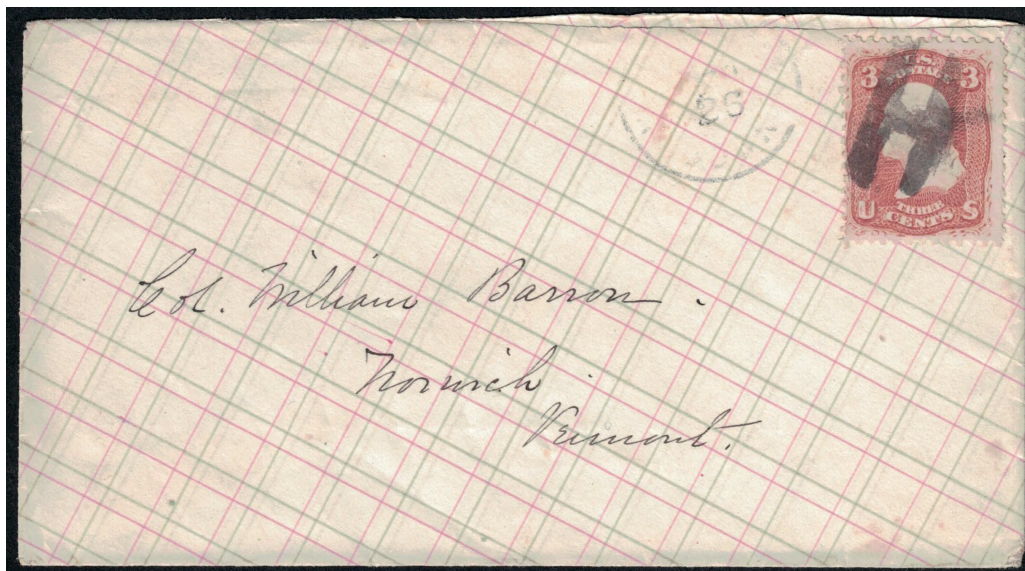 26
3 U.S. 3
POSTAGE
THREE
U CENTS S
Col. William Barron.
Norwich.
Vermont.